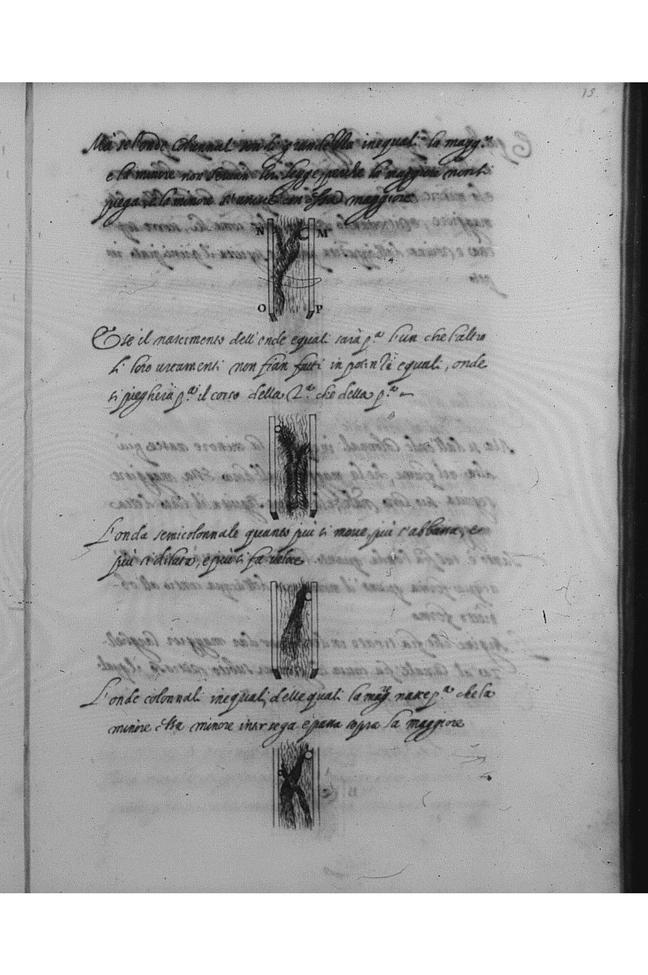 15.
Ma se l'onde colonnal son di grandezza inequal: la magg.re
e la minore non serván tal legge perche la maggiore non si
piega, e la minore s'unisce con essa maggiore
N M
O P
E se il nascimento dell'onde equali sarà p.a l'un che l'altro
li loro urtamenti non fian fatti in potñtia equali, onde
si piegherà p.a il corso della 2.a che della p.a
L'onda semicolonnale quanto più si move, più s'abbassa, e
più si dilata, e più si fa veloce
L'onde colonnali inequali, delle quali la mag.re nasce p.a che la
minore essa minore intersega e passa sopra la maggiore